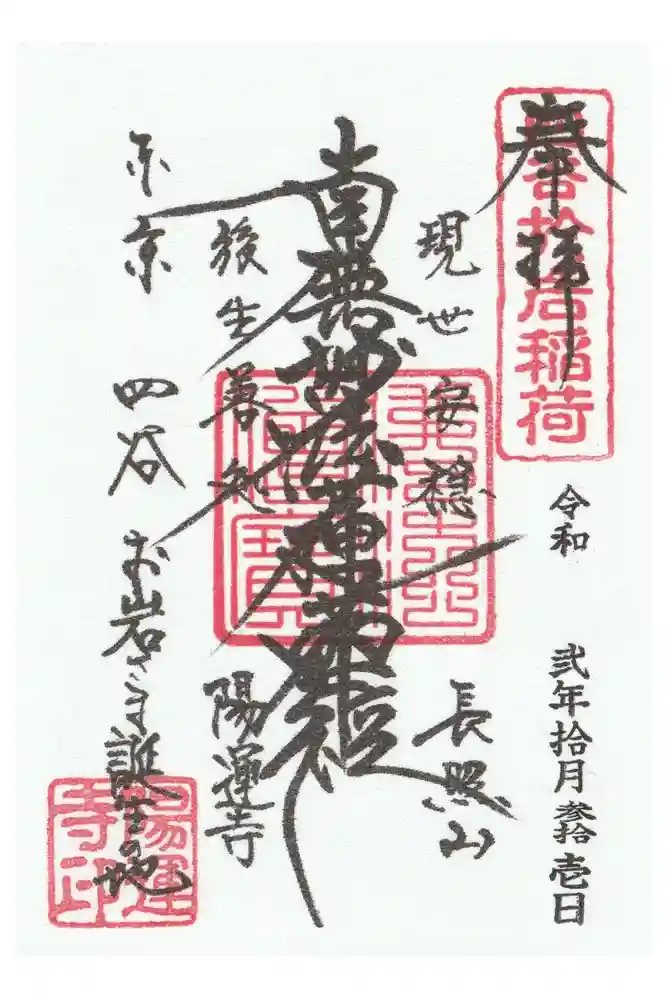 奉拝
四谷於岩稲荷
令和 弐年拾月参拾壱日
現世安穏 長照山
南無妙法蓮華経
後生善処 陽運寺
東京 四谷 お岩さま誕生の地
陽運寺印